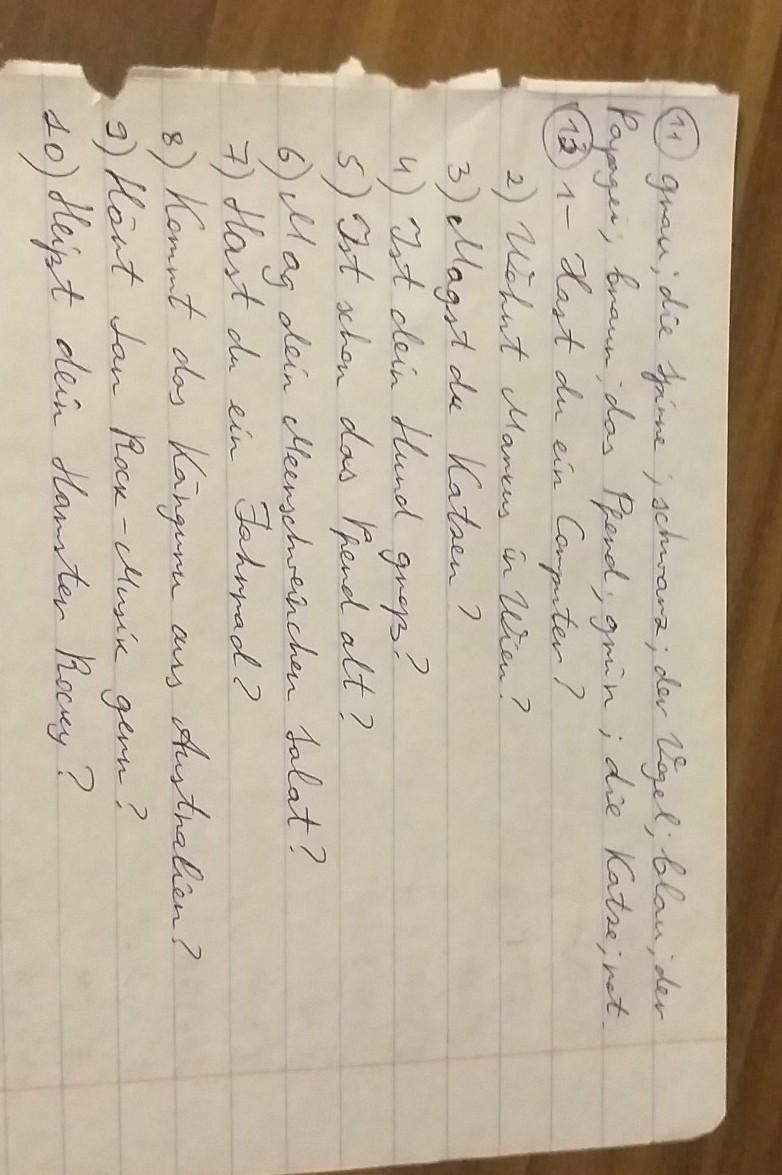 11 grau; die Spinne; schwarz; der Vogel; blau; der
Papagei; braun; das Pferd; grün; die Katze; rot.
12 1- Hast du ein Computer?
2) Wohnt Marcus in Wien?
3) Magst du Katzen?
4) Ist dein Hund groß?
5) Ist schon das Pferd alt?
6) Mag dein Meerschweinchen Salat?
7) Hast du ein Fahrrad?
8) Kommt das Känguru aus Australien?
9) Hört Jan Rock-Musik gern?
10) Heißt dein Hamster Rocky?